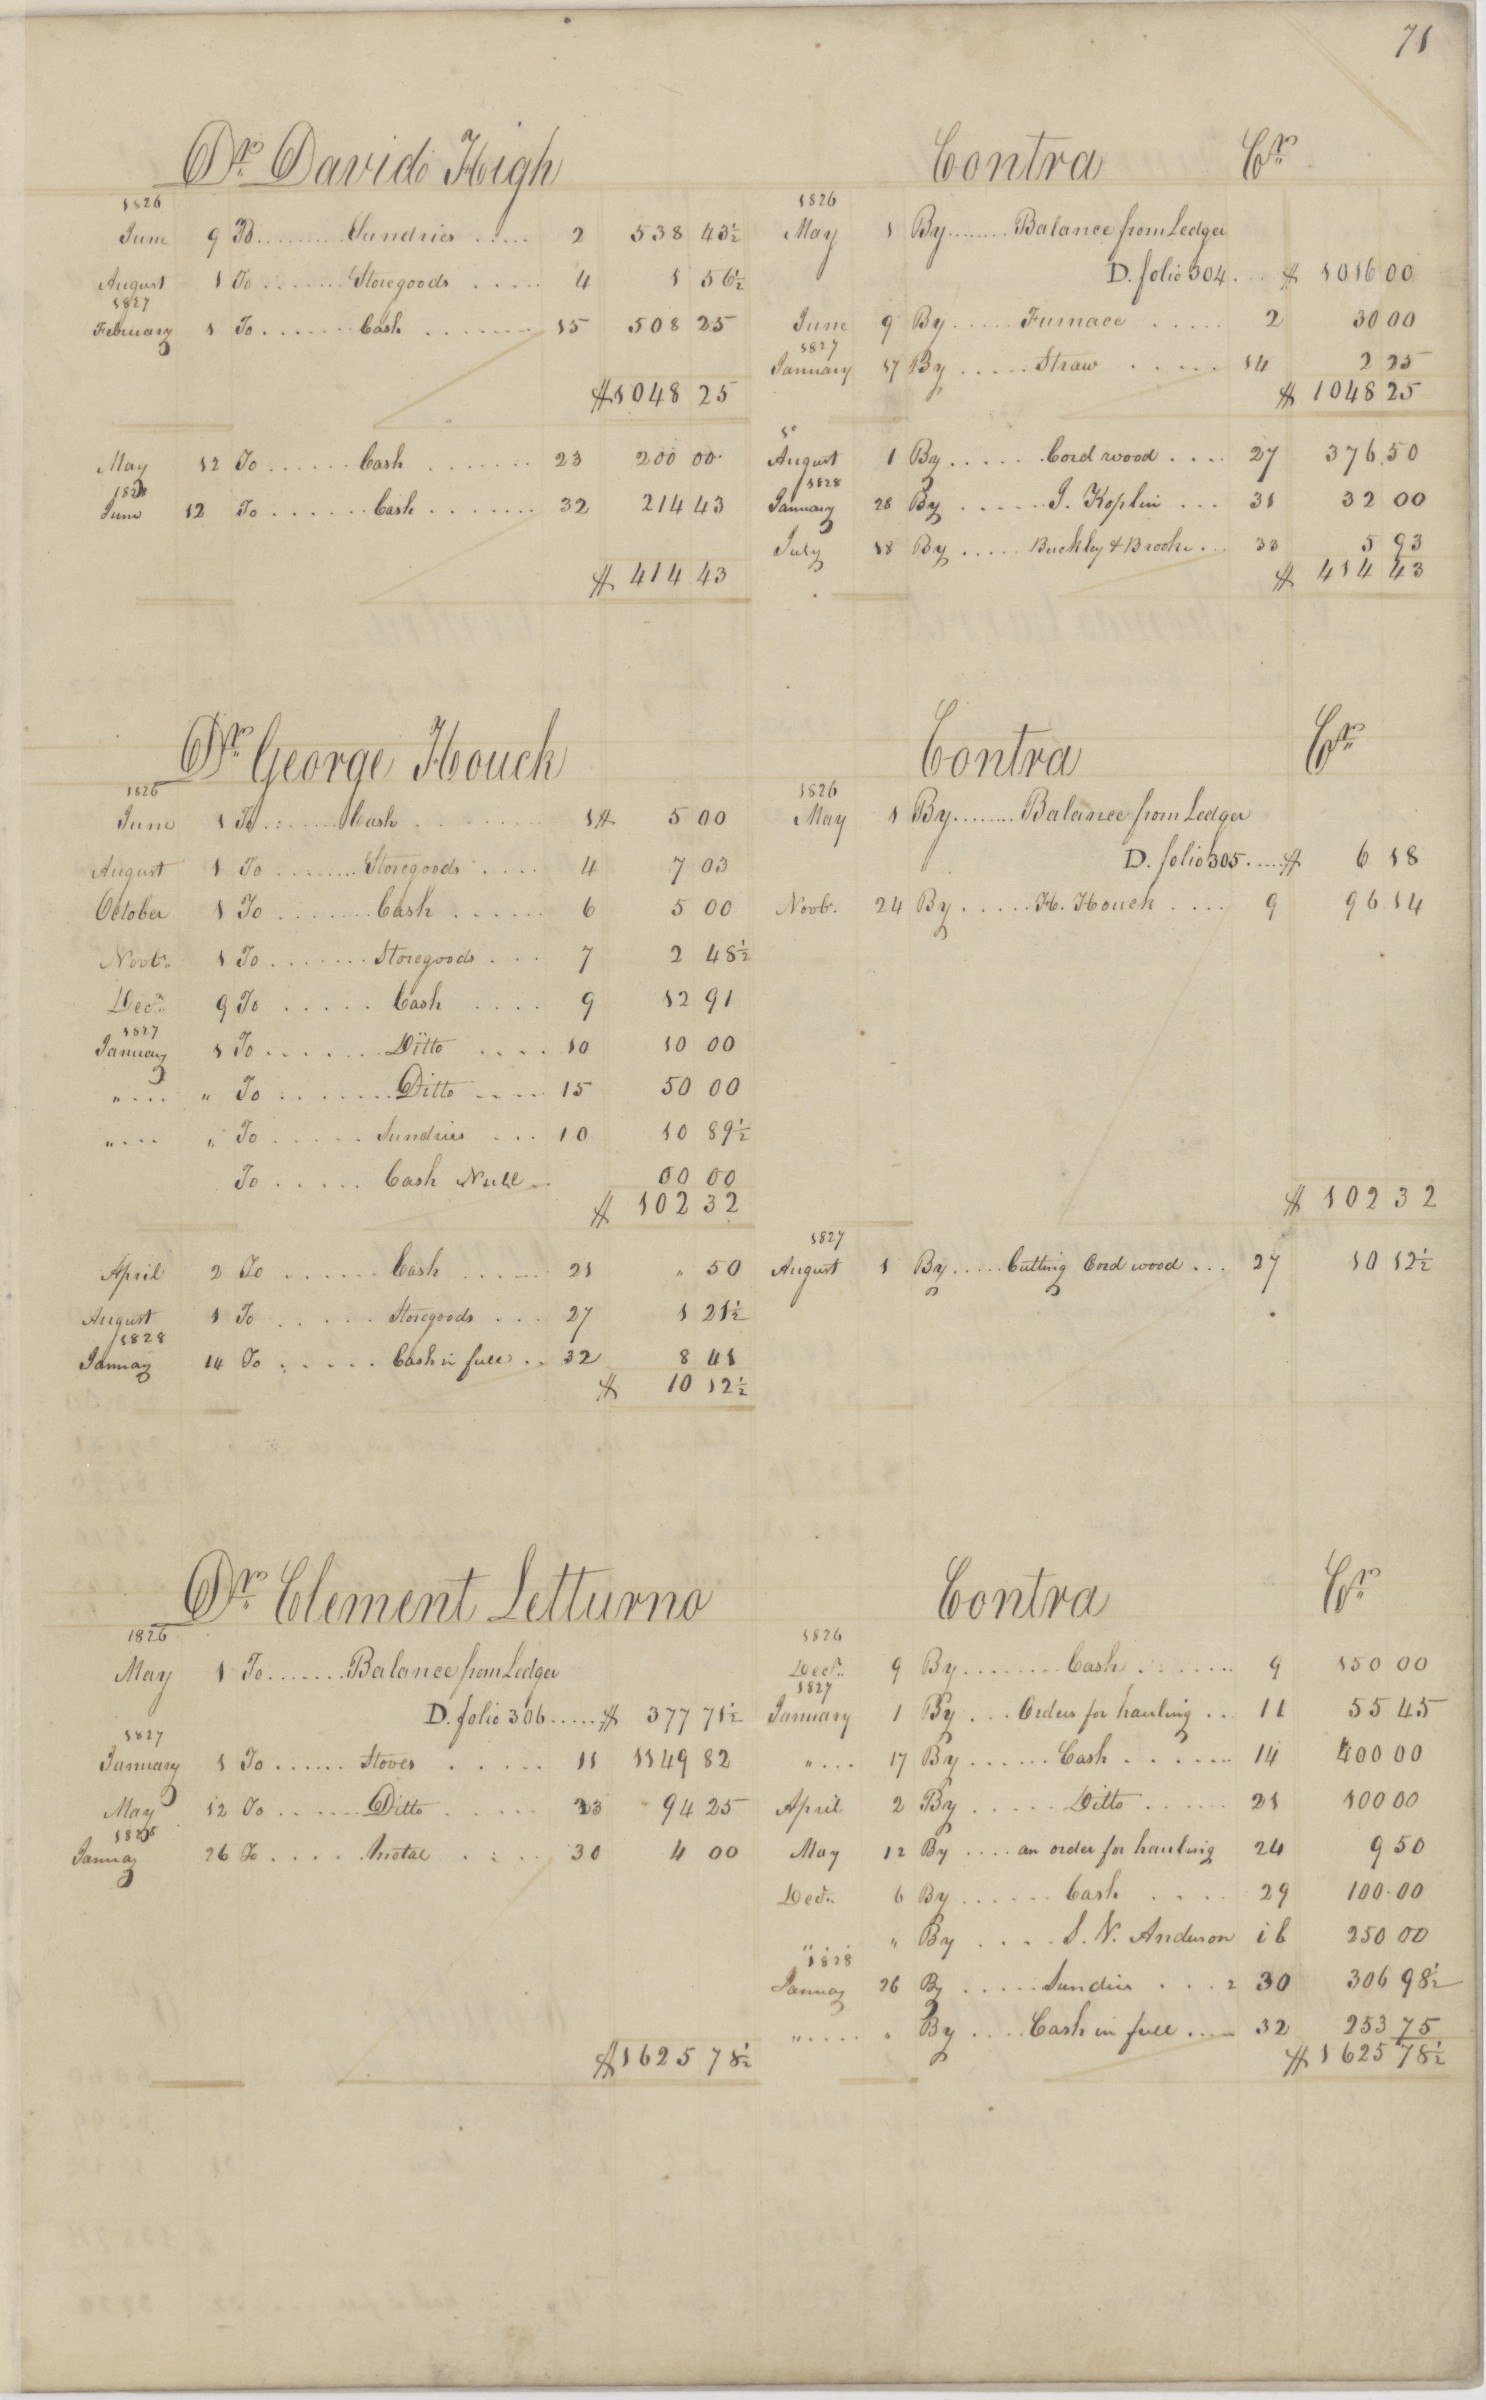 71
Dr. David High
1826
June 9 To ......... Sundries ..... 2 538 43½
August 1 To ....... Storegoods ..... 4 1 56½
1827
February 1 To ....... Cash ........ 15 508 25
$1048 25
May 12 To ...... Cash ....... 23 200 00
1828
June 12 To ...... Cash ........ 32 214 43
$ 414 43
Contra Cr.
1826
May 1 By ........ Balance from Ledger
D. folio 304 ... $ 1016 00
June 9 By ..... Furnace ..... 2 30 00
1827
January 17 By ..... Straw ..... 14 2 25
$ 1048 25
August 1 By ..... Cord wood .... 27 376 50
1828
January 28 By ...... J. Koplin ... 31 32 00
July 18 By ..... Buckley & Brooke ... 33 5 93
$ 414 43
Dr. George Houck
1826
June 1 To ....... Cash ........ 1 $ 5 00
August 1 To ....... Storegoods .... 4 7 03
October 1 To ....... Cash ...... 6 5 00
Novbr. 1 To ....... Storegoods ... 7 2 48½
Decr. 9 To ..... Cash .... 9 12 91
1827
January 1 To ....... Ditto .... 10 10 00
" .... " To ........ Ditto .... 15 50 00
" ... " To ..... Sundries ... 10 10 89½
To ..... Cash Null .. 00 00
$ 102 32
April 2 To ...... Cash ..... 21 " 50
August 1 To ..... Storegoods ... 27 1 21½
1828
January 14 To ..... Cash in full .. 32 8 41
$ 10 12½
Contra Cr.
1826
May 1 By ........ Balance from Ledger
D. folio 305 ..... $ 6 18
Novbr. 24 By ..... H. Houck .... 9 96 14
$ 102 32
1827
August 1 By ..... Cutting Cord wood ... 27 10 12½
Dr. Clement Letturno
1826
May 1 To ....... Balance from Ledger
D. folio 306 ..... $ 377 71½
1827
January 1 To ...... Stoves ..... 11 1149 82
May 12 To ...... Ditto ..... 23 94 25
1828
January 26 To .... Metal .... 30 4 00
$1625 78½
Contra Cr.
1826
Decr. 9 By ........ Cash ....... 9 150 00
1827
January 1 By ... Orders for hauling .. 11 55 45
" ... 17 By ...... Cash ....... 14 400 00
April 2 By ..... Ditto ...... 21 100 00
May 12 By .... an order for hauling 24 9 50
Decr. 6 By ...... Cash .... 29 100 00
" " By .... S. N. Anderson ib 250 00
1828
January 26 By ..... Sundries ... 2 30 306 98½
" ..... " By .... Cash in full .... 32 253 75
$ 1625 78½